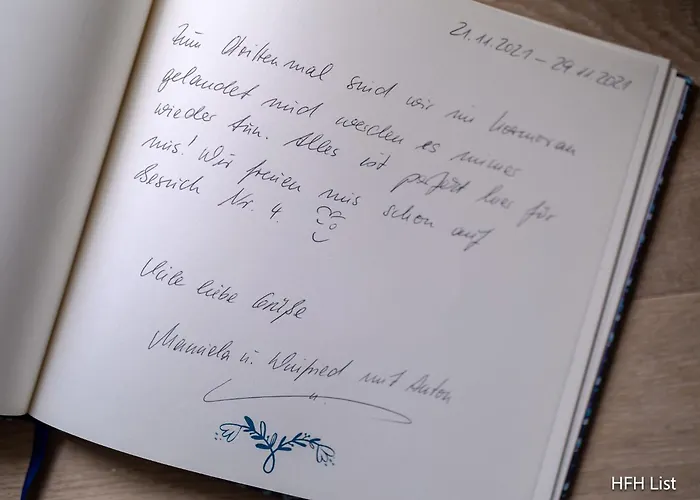 21.11.2021 – 29.11.2021
Zum dritten mal sind wir im Kormoran
gelandet und werden es immer
wieder tun. Alles ist perfekt hier für
uns! Wir freuen uns schon auf
Besuch Nr. 4.
Viele liebe Grüße
Manuela u. Winfried mit Anton
HFH List